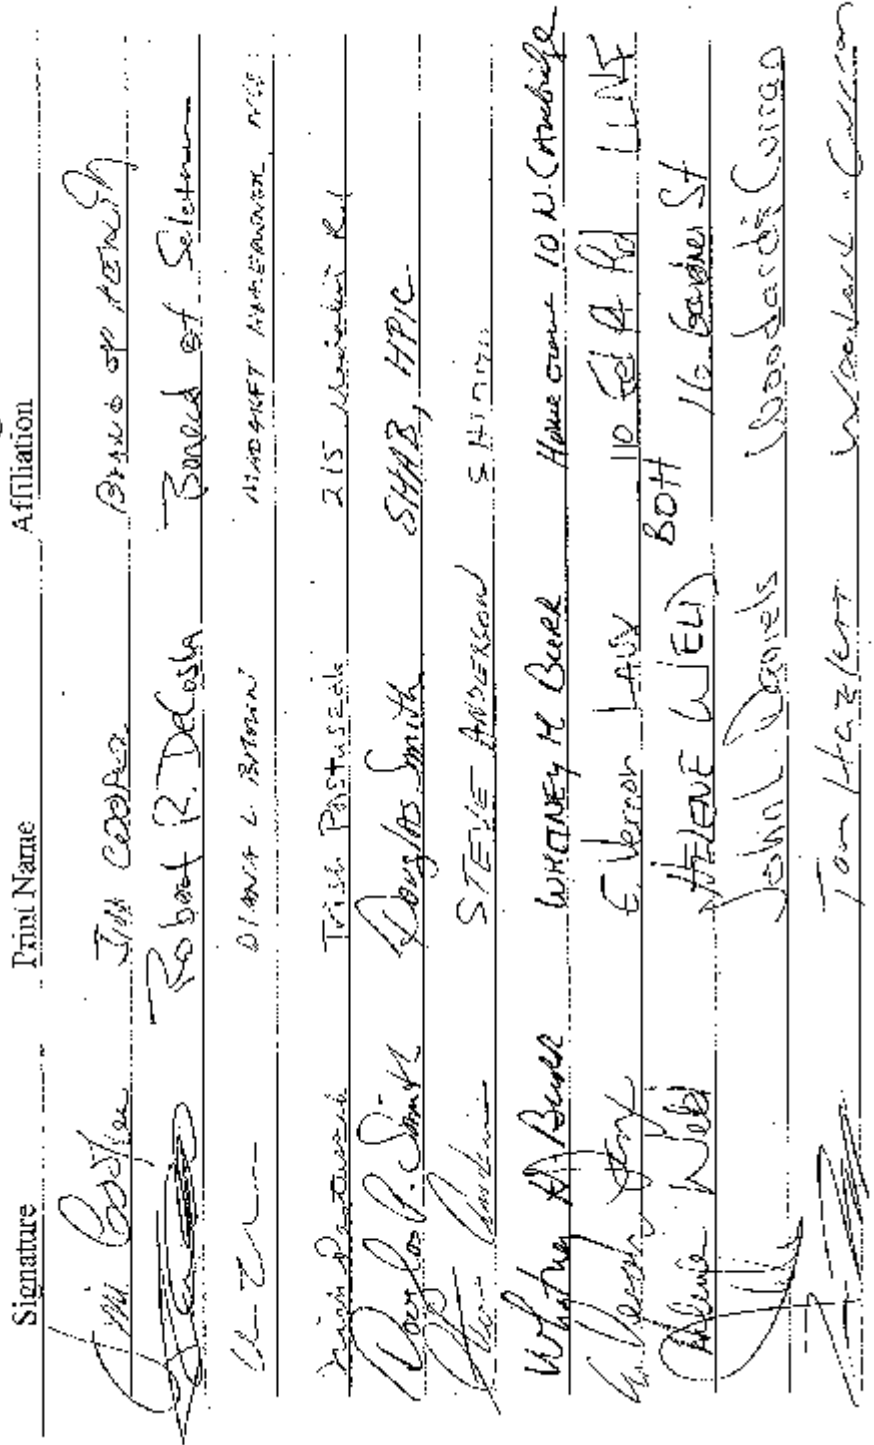 Signature Print Name Affiliation
Jim Cooper Jim COOPER BOARD OF HEALTH
Robert R. DeCosta Board of Selectmen
DIANA L BROWN MADAKET
Trish Pastuszak Trish Pastuszak 215 Madaket Rd
Douglas P. Smith Douglas Smith SHAB, HPIC
Steve Anderson STEVE ANDERSON
Whitney A. Burr WHITNEY A BURR Home owner 10 N. Cambridge
E. Vernon E. Vernon 110 Rd
Helene Weld HELENE WELD BOH 16 Gardner St
John L. Daniels Woodard & Curran
Tom Hazlett Woodard & Curran